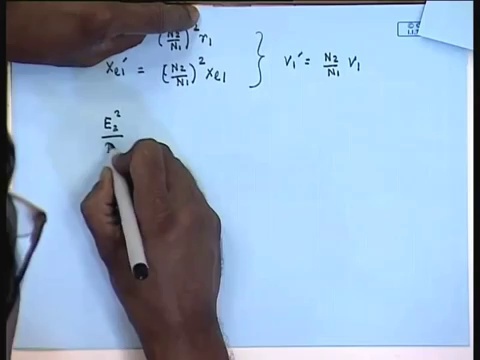 (N2/N1)^2 r1
xe1' = (N2/N1)^2 xe1 } V1' = N2/N1 V1
E2^2